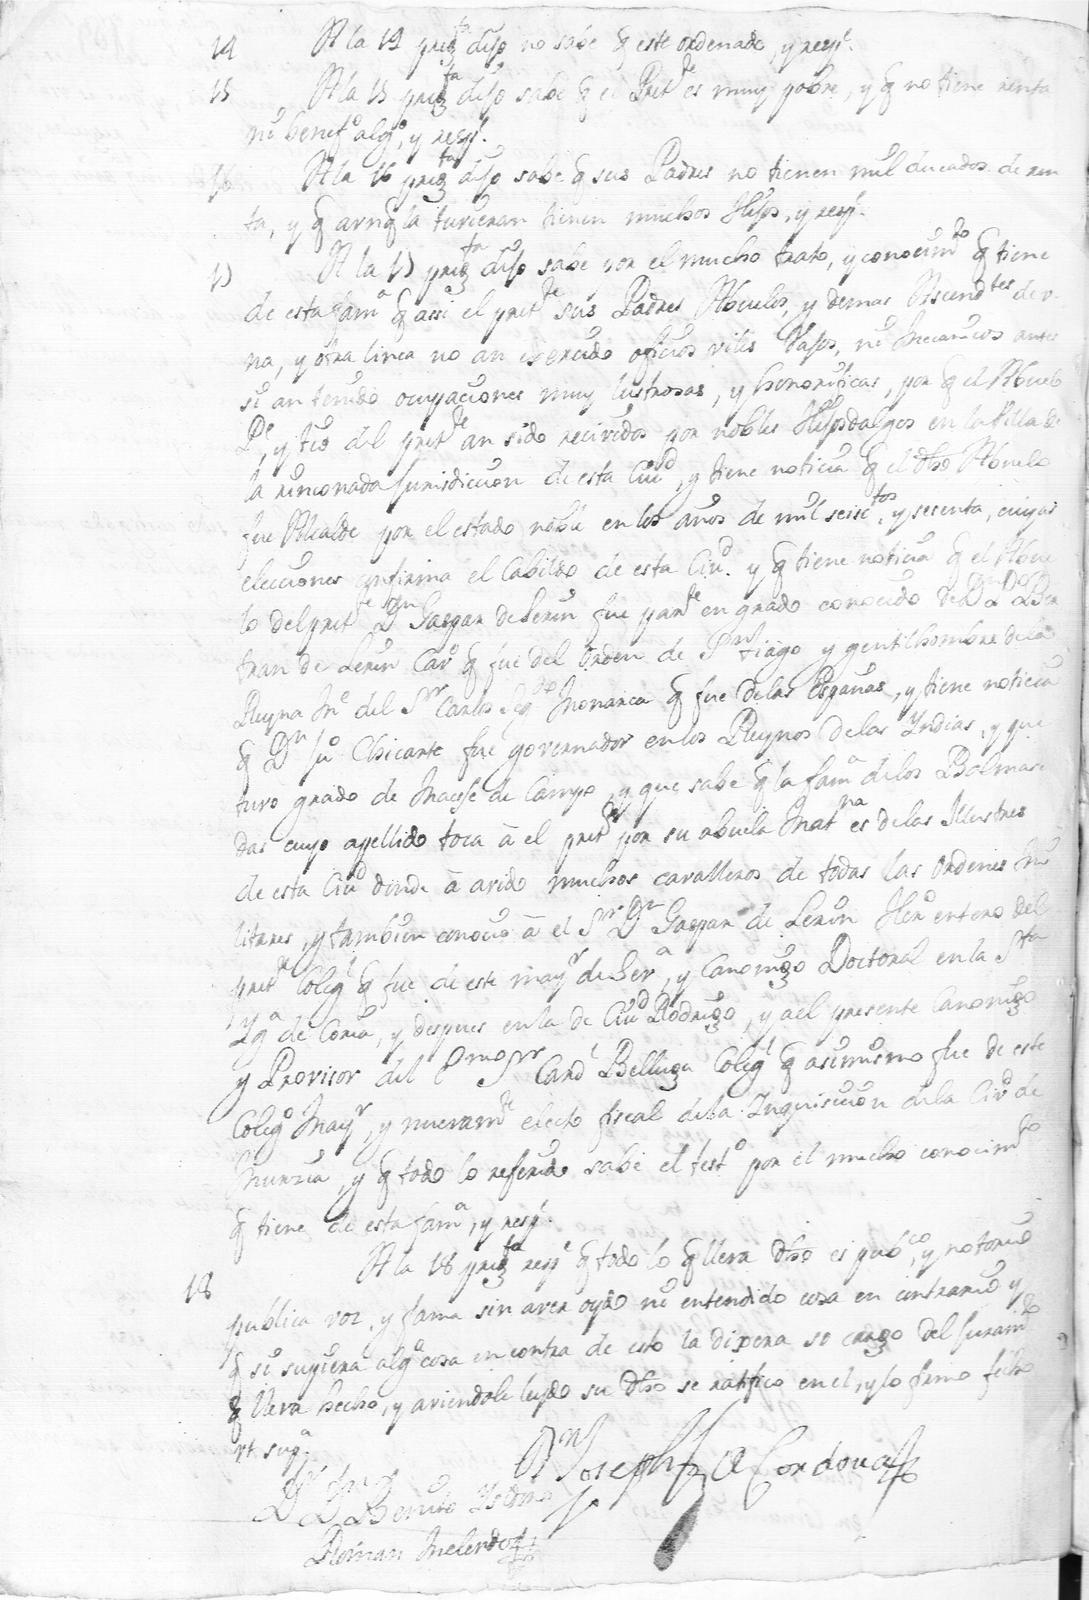 14 A la 14 preg.ta dijo no sabe q este ordenado, y resp.e
15 A la 15 preg.ta dijo sabe q el Pret.te es muy pobre, y q no tiene renta
ni benef.o alg.o, y resp.e
16 A la 16 preg.ta dijo sabe q sus Padres no tienen mil ducados de ren
ta, y q aunq la tuvieran tienen muchos Hijos, y resp.e
17 A la 17 preg.ta dijo sabe por el mucho trato, y conocim.to q tiene
de esta fam.a q assi el pret.te sus Padres Abuelos, y demas Ascend.tes de v
na, y otra linea no an exercido oficios viles Vajos, ni Mecanicos antes
si an tenido ocupaciones muy lustrosas, y honorificas, por q el Abuelo
P.e, y tio del pret.te an sido recividos por nobles Hijosdalgos en la Villa de
la rinconada Jurisdiccion de esta Ciu.d, y tiene noticia q el dho Abuelo
fue Alcalde por el estado noble en los años de mil seisc.tos, y sesenta, cuyas
elecciones confirma el Cabildo de esta Ciu.d y q tiene noticia q el Abue
lo del pret.te D.n Gaspar de Lerin fue par.te en grado conocido de D.n D.o Ber
tran de Lerin Cav.o q fue del orden de S.n tiago y gentilhombre de la
Reyna M.e del S.r Carlos Seg.do Monarca q fue de las Españas, y tiene noticia
q D.n Ju.o Chicarte fue governador en los Reynos de las Yndias, y que
tuvo grado de Maese de Campo, y que sabe q la fam.a de los Balmase
das cuyo apellido toca à el pret.te por su abuela Mat.na es de las Illustres
de esta Ciu.d donde à avido muchos cavalleros de todas las ordenes Mi
litares, y tambien conocio à el S.r D.n Gaspar de Lerin Her.o entero del
pret.te Coleg.l q fue de este may.r de Sev.a, y Canonigo Doctoral en la S.ta
Yg.a de Coria, y despues en la de Ciu.d Rodrigo, y a el presente Canonigo
y Provisor del E.mo S.r Card.l Belluga Coleg.l q asimismo fue de este
Coleg.o May.r, y nuevam.te electo fiscal de la Inquisicion de la Ciu.d de
Murcia, y q todo lo referido sabe el test.o por el mucho conocim.to
q tiene de esta fam.a, y resp.e
18 A la 18 preg.ta resp.e q todo lo q lleva dho es pub.co, y notorio
publica voz, y fama sin aver oydo ni entendido cosa en contrario y
q si supiera alg.a cosa en contra de esto la dixera so cargo del Juram.to
q lleva hecho, y aviendole leydo su dho se ratifico en el, y lo firmo fecho
vt sup.a
D.n Joseph de Cordova
D.r D.n Benito Ysidro
Roman Melendo